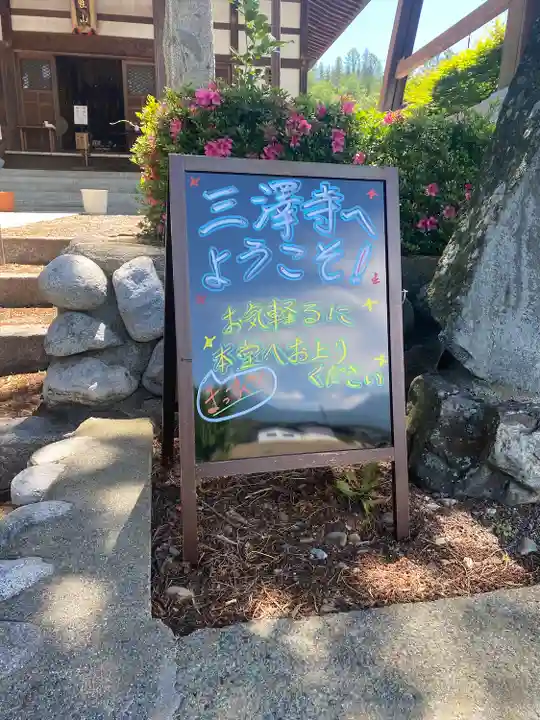 三澤寺へ
ようこそ!
お気軽るに
本堂へお上り
ください